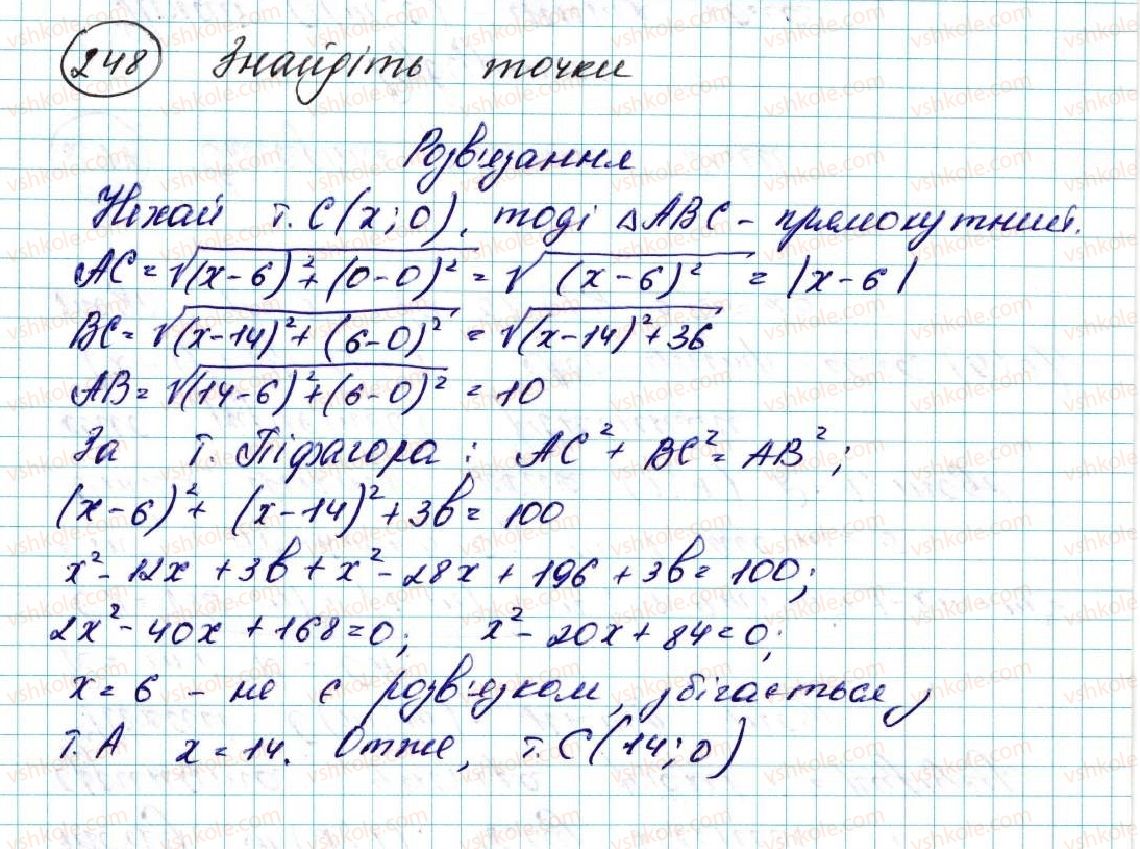 248 Знайдіть точки
Розв'язання
Нехай т. C(x; 0), тоді △ABC - прямокутний.
AC = √(x-6)²+(0-0)² = √(x-6)² = |x-6|
BC = √(x-14)²+(6-0)² = √(x-14)²+36
AB = √(14-6)²+(6-0)² = 10
За т. Піфагора: AC² + BC² = AB²;
(x-6)² + (x-14)² + 36 = 100
x² - 12x + 36 + x² - 28x + 196 + 36 = 100;
2x² - 40x + 168 = 0; x² - 20x + 84 = 0;
x = 6 - не є розв'язком, збігається з
т. A x = 14. Отже, т. C(14; 0)